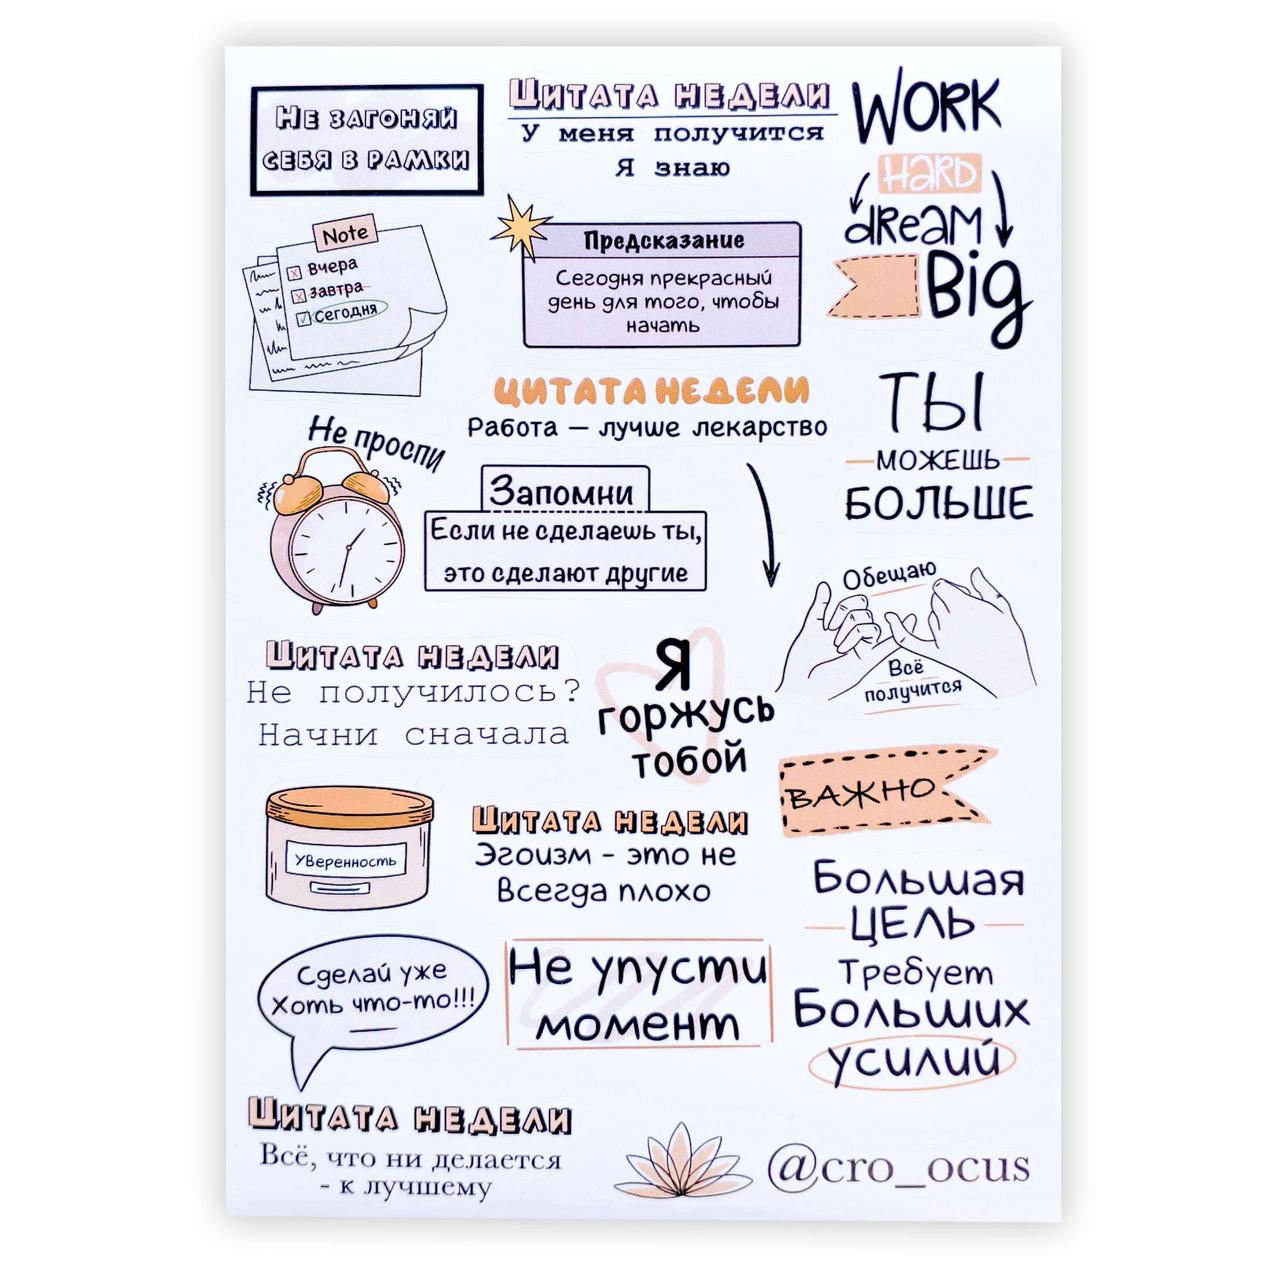 Не загоняй
себя в рамки
Цитата недели
У меня получится
Я знаю
WORK
HARD
dReaM
Big
Note
Вчера
Завтра
Сегодня
Предсказание
Сегодня прекрасный
день для того, чтобы
начать
ЦИТАТА НЕДЕЛИ
Работа — лучше лекарство
ТЫ
МОЖЕШЬ
БОЛЬШЕ
Не проспи
Запомни
Если не сделаешь ты,
это сделают другие
Обещаю
Всё
получится
Цитата недели
Не получилось?
Начни сначала
Я
горжусь
тобой
ВАЖНО
Уверенность
Цитата недели
Эгоизм - это не
Всегда плохо
Большая
ЦЕЛЬ
Требует
Больших
усилий
Сделай уже
Хоть что-то!!!
Не упусти
момент
Цитата недели
Всё, что ни делается
- к лучшему
@cro_ocus